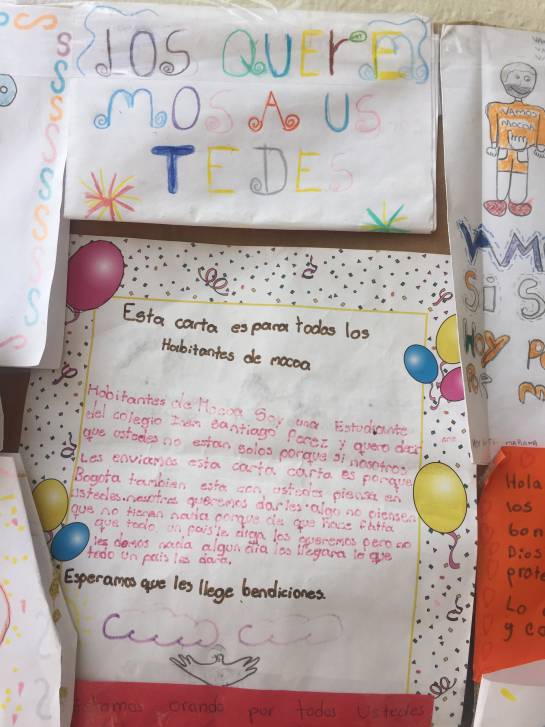 LOS QUERE
MOS A US
TEDES
Esta carta es para todos los
Habitantes de mocoa
Habitantes de Mocoa Soy una Estudiante
del colegio Santiago Perez y quero decir
que ustedes no estan solos porque si nosotros
Les enviamos esta carta carta es porque
Bogota tambien esta con ustedes piensa en
ustedes. nosotros queremos darles algo no piensen
que no tienen nada porque de que hace
que todo un pais le digan los queremos pero no
les damos nada algun dia les llegara lo que
todo un pais les dara.
Esperamos que les llege bendiciones.
Estamos orando por todos Ustedes
VAMOS
MOCOA
VAM
Si S
HOY P
Hola
los
bon
Dios
prote
Lo
y co